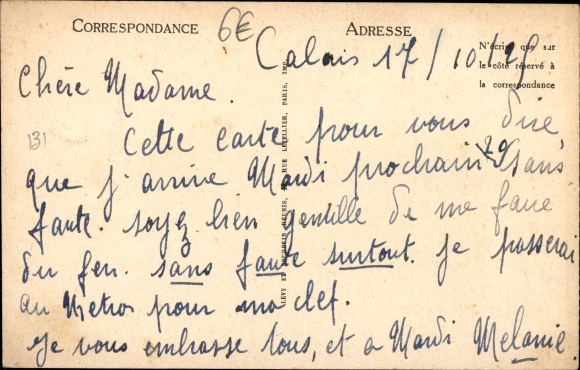 CORRESPONDANCE
6€
ADRESSE
Calais 17/10/29
N'écrire que sur
le côté réservé à
la correspondance
Chère Madame.
131
Cette carte pour vous dire,
que j'arrive Mardi prochain 20 sans
faute. soyez bien gentille de me faire
du feu. sans faute surtout. je passerai
au Metros pour ma clef.
Je vous embrasse tous, et a Mardi Melanie.
LEVY ET RÉUNIS, RUE LETELLIER, PARIS, IMP.